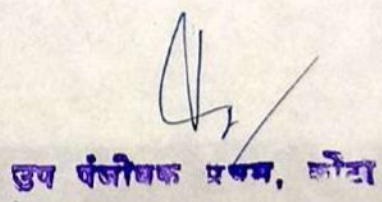 उप पंजीयक प्रथम, कोटा